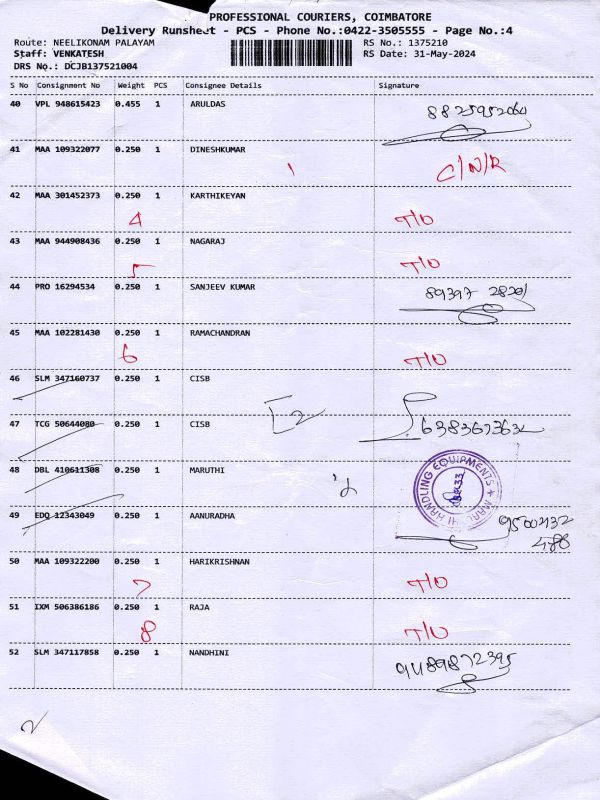 PROFESSIONAL COURIERS, COIMBATORE
Delivery Runsheet - PCS - Phone No.:0422-3505555 - Page No.:4
Route: NEELIKONAM PALAYAM RS No.: 1375210
Staff: VENKATESH RS Date: 31-May-2024
DRS No.: DCJB137521004
S No Consignment No Weight PCS Consignee Details Signature
40 VPL 948615423 0.455 1 ARULDAS 8825952064
41 MAA 109322077 0.250 1 DINESHKUMAR C/N/R
42 MAA 301452373 0.250 1 KARTHIKEYAN
4 T/O
43 MAA 944908436 0.250 1 NAGARAJ
5 T/O
44 PRO 16294534 0.250 1 SANJEEV KUMAR 89397 28201
45 MAA 102281430 0.250 1 RAMACHANDRAN
6 T/O
46 SLM 347160737 0.250 1 CISB
47 TCG 50644080 0.250 1 CISB
48 DBL 410611308 0.250 1 MARUTHI
HANDLING EQUIPMENTS
49 EDQ 12343049 0.250 1 AANURADHA 9500432
488
50 MAA 109322200 0.250 1 HARIKRISHNAN
7 T/O
51 IXM 506386186 0.250 1 RAJA
8 T/O
52 SLM 347117858 0.250 1 NANDHINI 9489872395